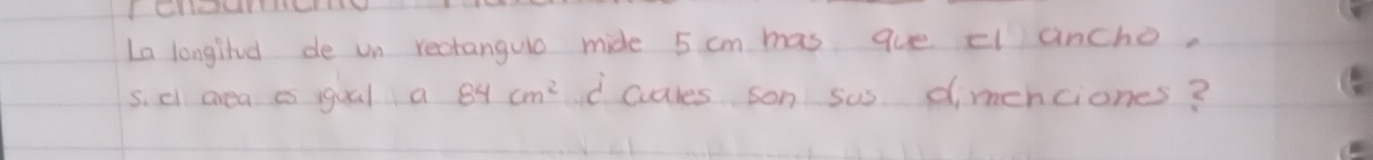 Pensamiento
La longitud de un rectangulo mide 5 cm mas que el ancho.
si el area es igual a 84 cm² ¿ cuales son sus dimenciones?